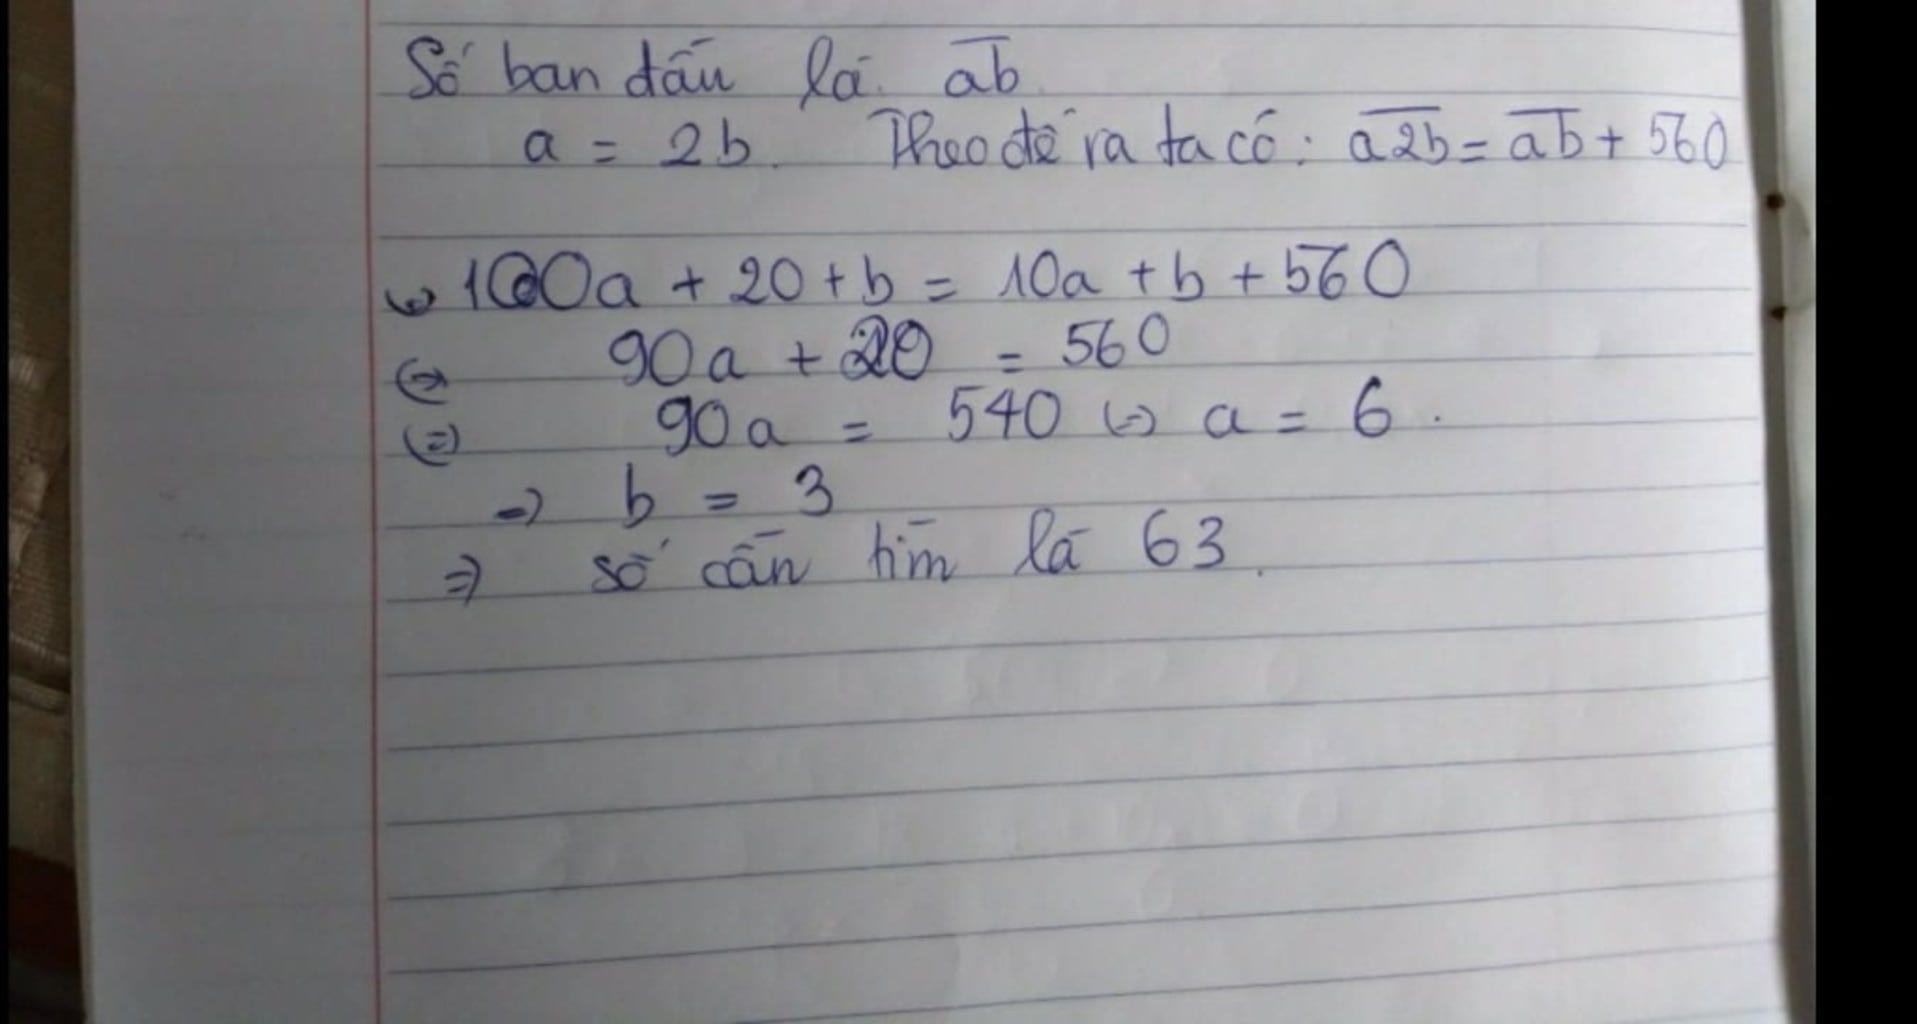 Số ban đầu là ab̅
a = 2b. Theo đề ra ta có: a2b̅ = ab̅ + 560
⇔ 100a + 20 + b = 10a + b + 560
⇔ 90a + 20 = 560
⇔ 90a = 540 ⇔ a = 6.
⇒ b = 3
⇒ số cần tìm là 63.